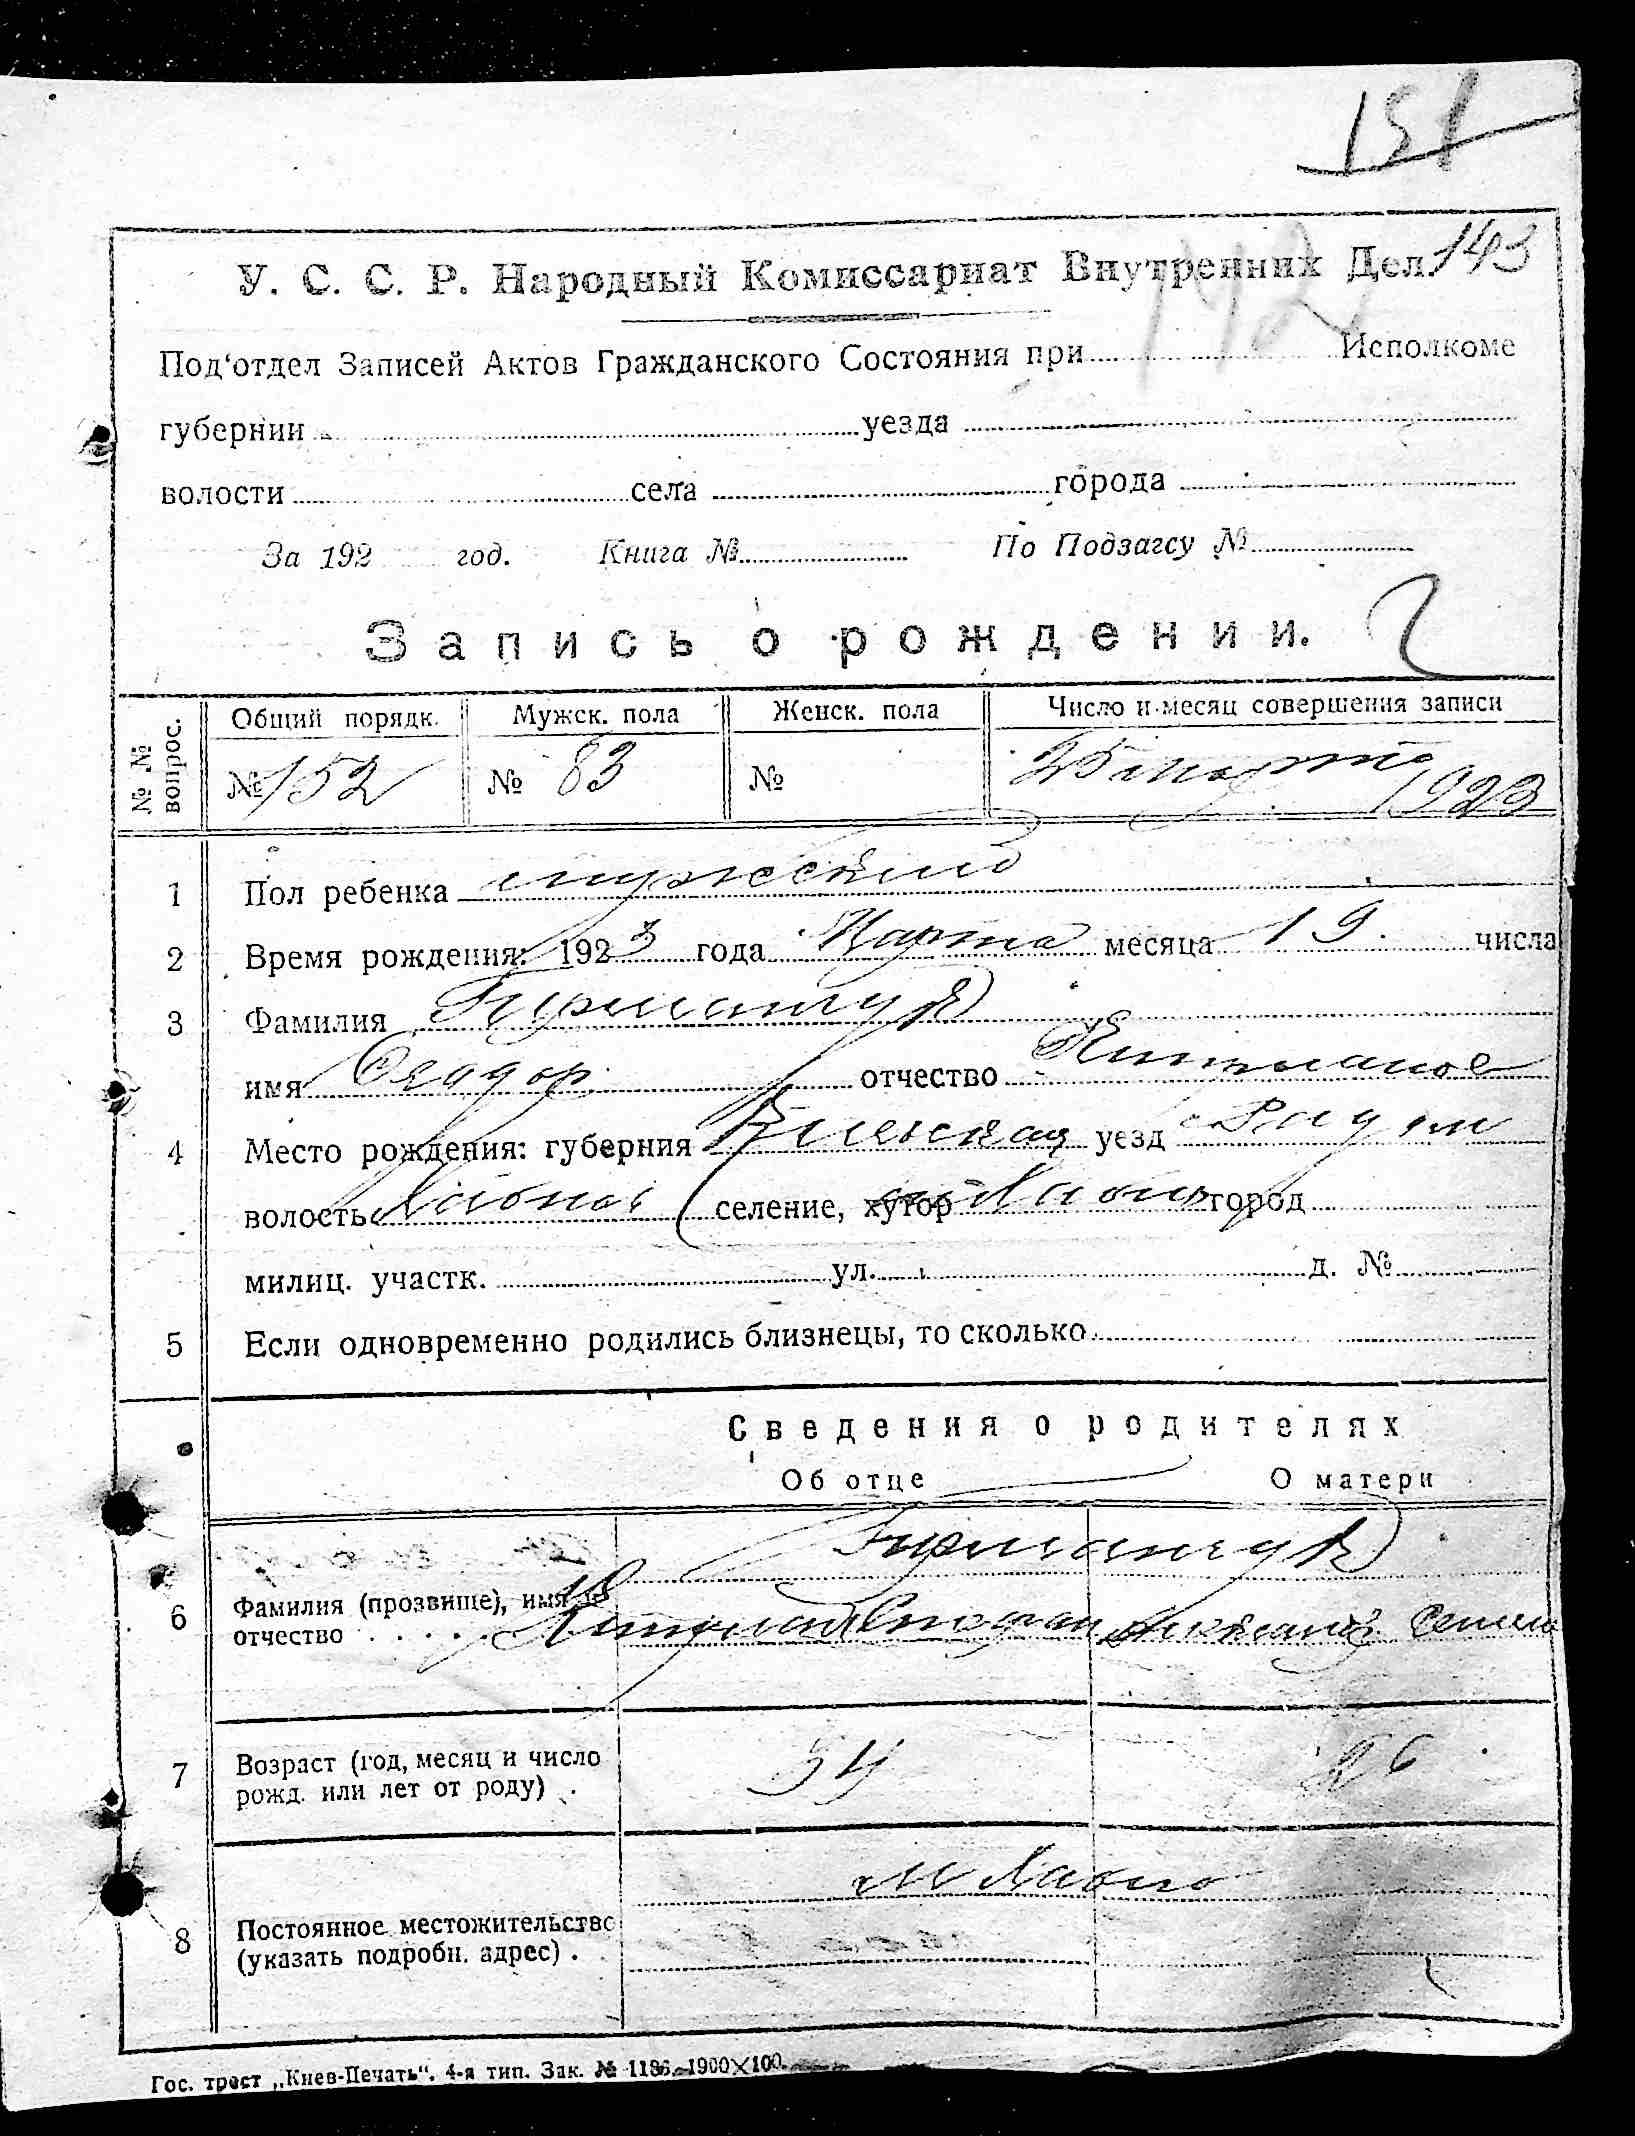 151
У. С. С. Р. Народный Комиссариат Внутренних Дел. 143
142
Под'отдел Записей Актов Гражданского Состояния при Исполкоме
губернии уезда
волости села города
За 192 год. Книга № По Подзагсу №
Запись о рождении.
№№ вопрос. Общий порядк. Мужск. пола Женск. пола Число и месяц совершения записи
№ 152 № 83 № 25 марта 1923
1 Пол ребенка мужской
2 Время рождения: 1923 года Марта месяца 19 числа
3 Фамилия
имя отчество
4 Место рождения: губерния Киевская уезд Радом
волость Хабное селение, хутор м Хабно город
милиц. участк. ул. д. №
5 Если одновременно родились близнецы, то сколько
Сведения о родителях
Об отце О матери
6 Фамилия (прозвище), имя и
отчество
7 Возраст (год, месяц и число
рожд. или лет от роду) 34 26
м Хабно
8 Постоянное местожительство
(указать подробн. адрес)
Гос. трест „Киев-Печать“. 4-я тип. Зак. № 1186—1900×100.